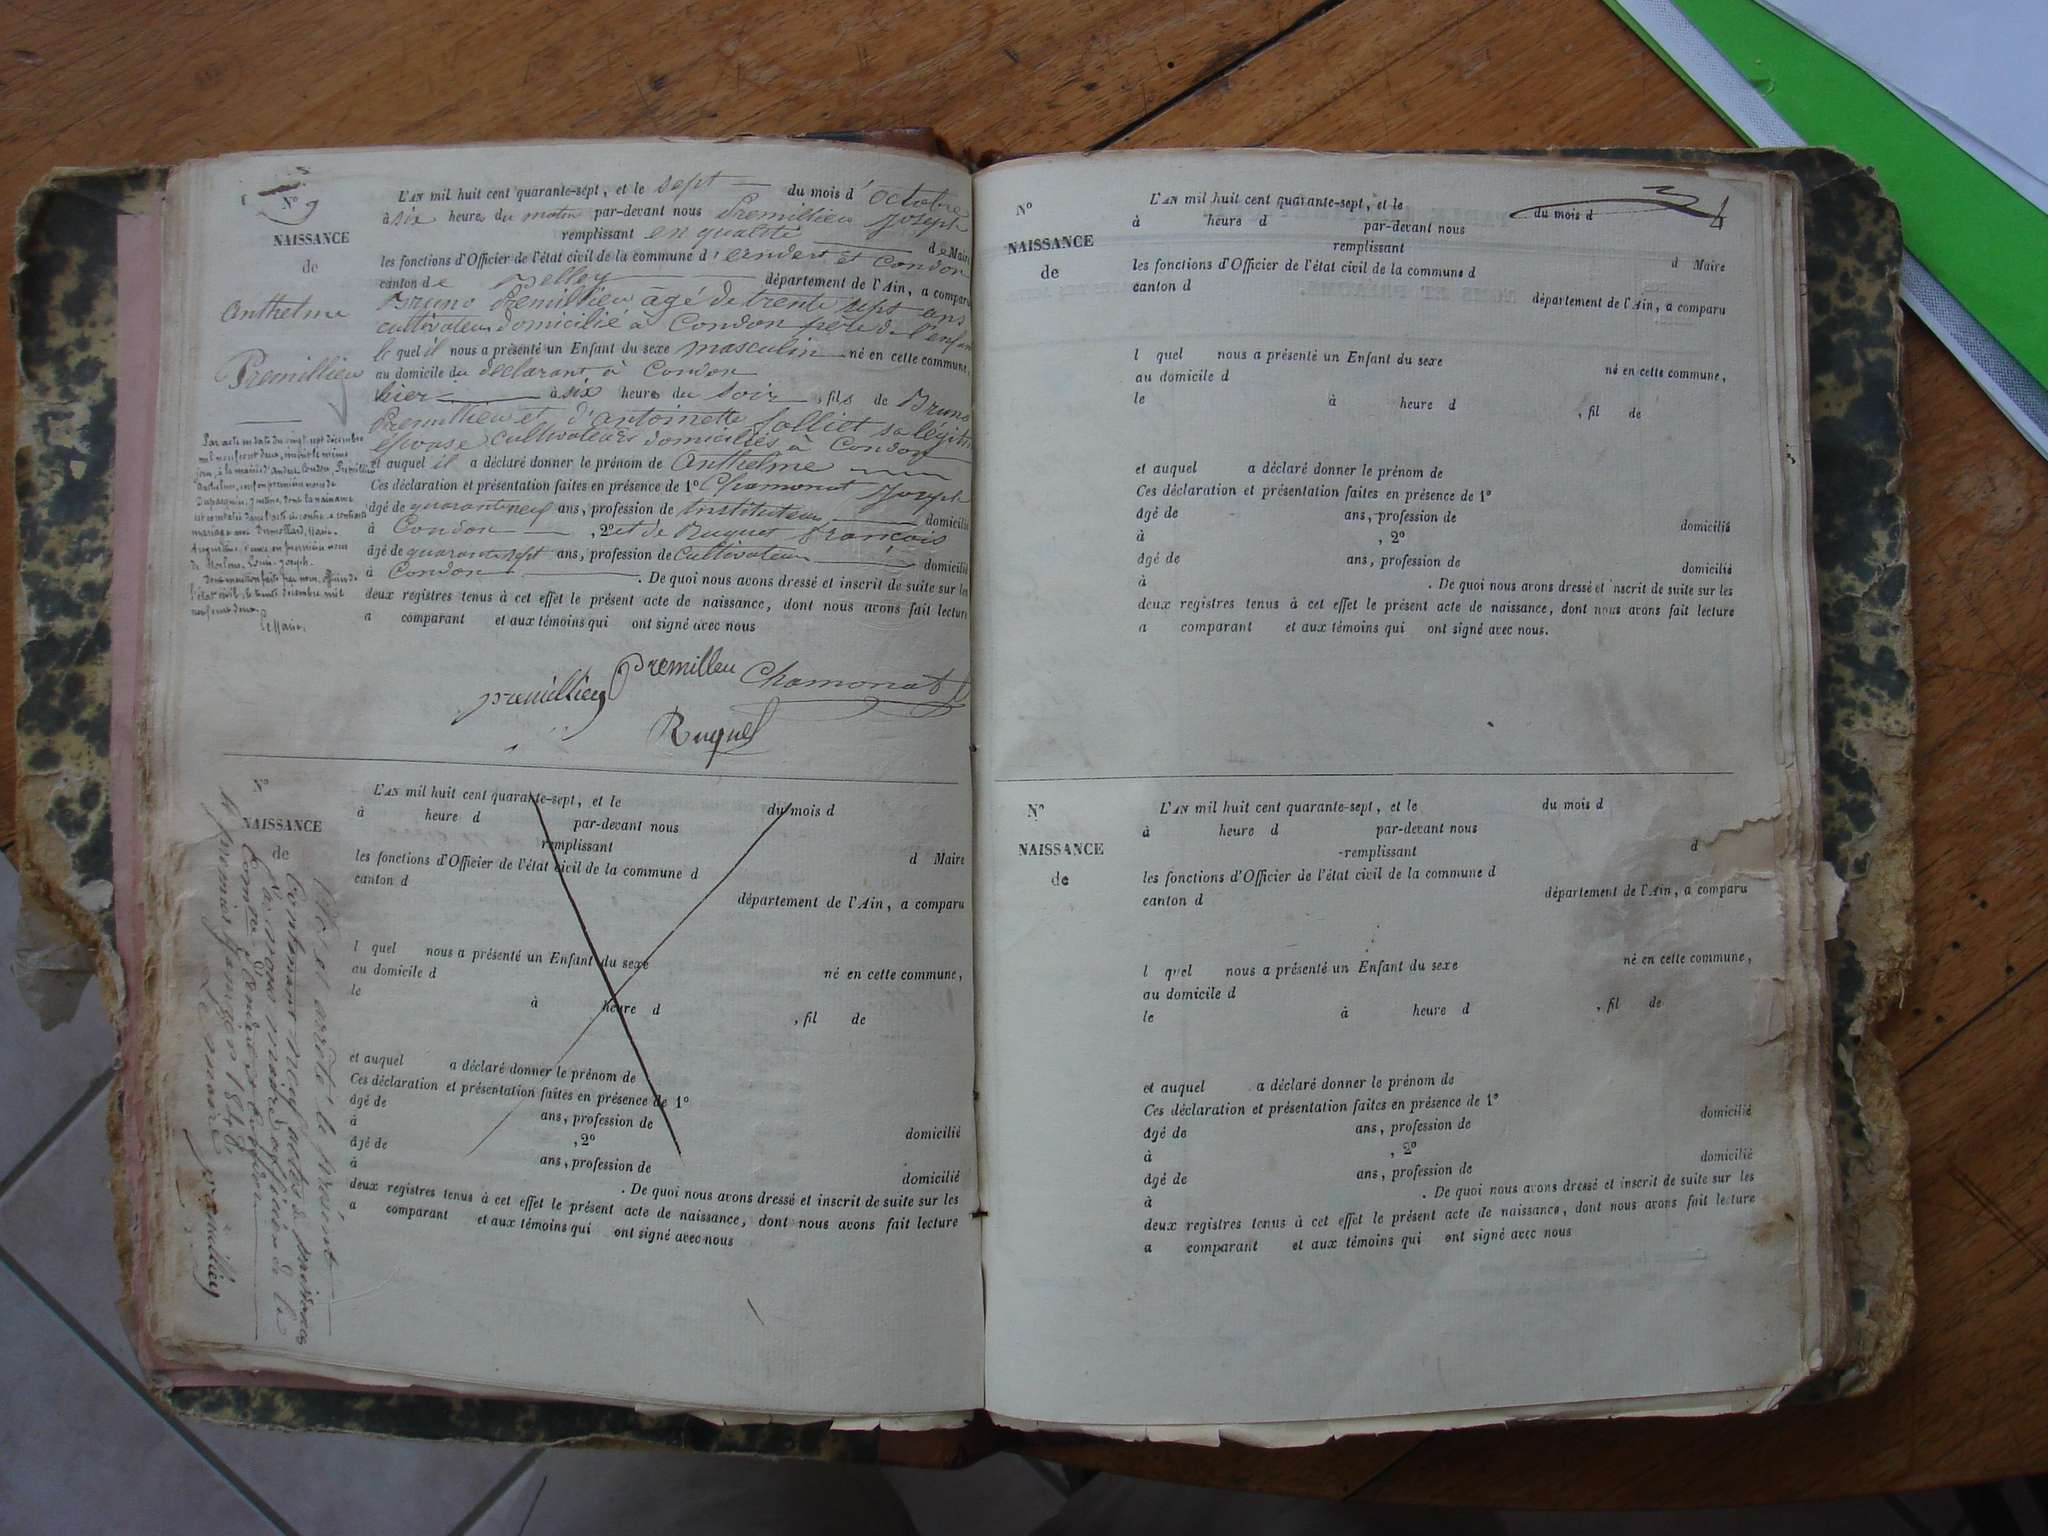 N° 9
NAISSANCE
de
Anthelme
Premillieu
L'AN mil huit cent quarante-sept, et le sept du mois d'octobre
à six heure du matin par-devant nous Premillieu Joseph
remplissant en qualité de Maire
les fonctions d'Officier de l'état civil de la commune d'andert et Condon
canton de Belley département de l'Ain, a comparu
Bruno Premillieu âgé de trente sept ans
cultivateur domicilié à Condon père de l'enfant
le quel il nous a présenté un Enfant du sexe masculin né en cette commune,
au domicile du déclarant à Condon
hier à six heures du soir, fils de Bruno
Premillieu et d'antoinette Jolliet sa légitime
épouse cultivateurs domiciliés à Condon
et auquel il a déclaré donner le prénom de Anthelme
Ces déclaration et présentation faites en présence de 1° Chamonat Joseph
âgé de quarante neuf ans, profession de Instituteur domicilié
à Condon, 2° et de Ruquet françois
âgé de quarante sept ans, profession de Cultivateur domicilié
à Condon. De quoi nous avons dressé et inscrit de suite sur les
deux registres tenus à cet effet le présent acte de naissance, dont nous avons fait lecture
a comparant et aux témoins qui ont signé avec nous
Par acte en date du vingt sept décembre
mil neuf cent deux, inscrit le même
jour, à la mairie d'Andert Condon, Premillieu
Anthelme, veuf en première noces de
dont la naissance
est constatée dans l'acte ci-contre a contracté
mariage avec Marie
Augustine, veuve en première noces
de Louis-Joseph.
Dont mention faite par nous, officier de
l'état civil, le trente décembre mil
neuf cent deux.
Le Maire,
premillieu Premilleu Chamonat
Ruquet
NAISSANCE
de
L'AN mil huit cent quarante-sept, et le du mois d
à heure d par-devant nous
remplissant
les fonctions d'Officier de l'état civil de la commune d d Maire
canton d
département de l'Ain, a comparu
l quel nous a présenté un Enfant du sexe
au domicile d né en cette commune,
le à heure d , fil de
et auquel a déclaré donner le prénom de
Ces déclaration et présentation faites en présence de 1°
âgé de ans, profession de
à , 2° domicilié
âgé de ans, profession de
à domicilié
. De quoi nous avons dressé et inscrit de suite sur les
deux registres tenus à cet effet le présent acte de naissance, dont nous avons fait lecture
a comparant et aux témoins qui ont signé avec nous
Clos et arrêté le présent
Contenant neuf actes de naissances
Par nous maire officier de la
Commune d'andert et Condon
le premier Janvier 1848
Le maire
premillieu
4
N°
NAISSANCE
de
L'AN mil huit cent quarante-sept, et le du mois d
à heure d par-devant nous
remplissant
les fonctions d'Officier de l'état civil de la commune d d Maire
canton d
département de l'Ain, a comparu
l quel nous a présenté un Enfant du sexe
au domicile d né en cette commune,
le à heure d , fil de
et auquel a déclaré donner le prénom de
Ces déclaration et présentation faites en présence de 1°
âgé de ans, profession de domicilié
à , 2°
âgé de ans, profession de domicilié
à . De quoi nous avons dressé et inscrit de suite sur les
deux registres tenus à cet effet le présent acte de naissance, dont nous avons fait lecture
a comparant et aux témoins qui ont signé avec nous.
N°
NAISSANCE
de
L'AN mil huit cent quarante-sept, et le du mois d
à heure d par-devant nous
remplissant d
les fonctions d'Officier de l'état civil de la commune d
canton d département de l'Ain, a comparu
l quel nous a présenté un Enfant du sexe né en cette commune,
au domicile d
le à heure d , fil de
et auquel a déclaré donner le prénom de
Ces déclaration et présentation faites en présence de 1°
âgé de ans, profession de domicilié
à , 2°
âgé de ans, profession de domicilié
à . De quoi nous avons dressé et inscrit de suite sur les
deux registres tenus à cet effet le présent acte de naissance, dont nous avons fait lecture
a comparant et aux témoins qui ont signé avec nous